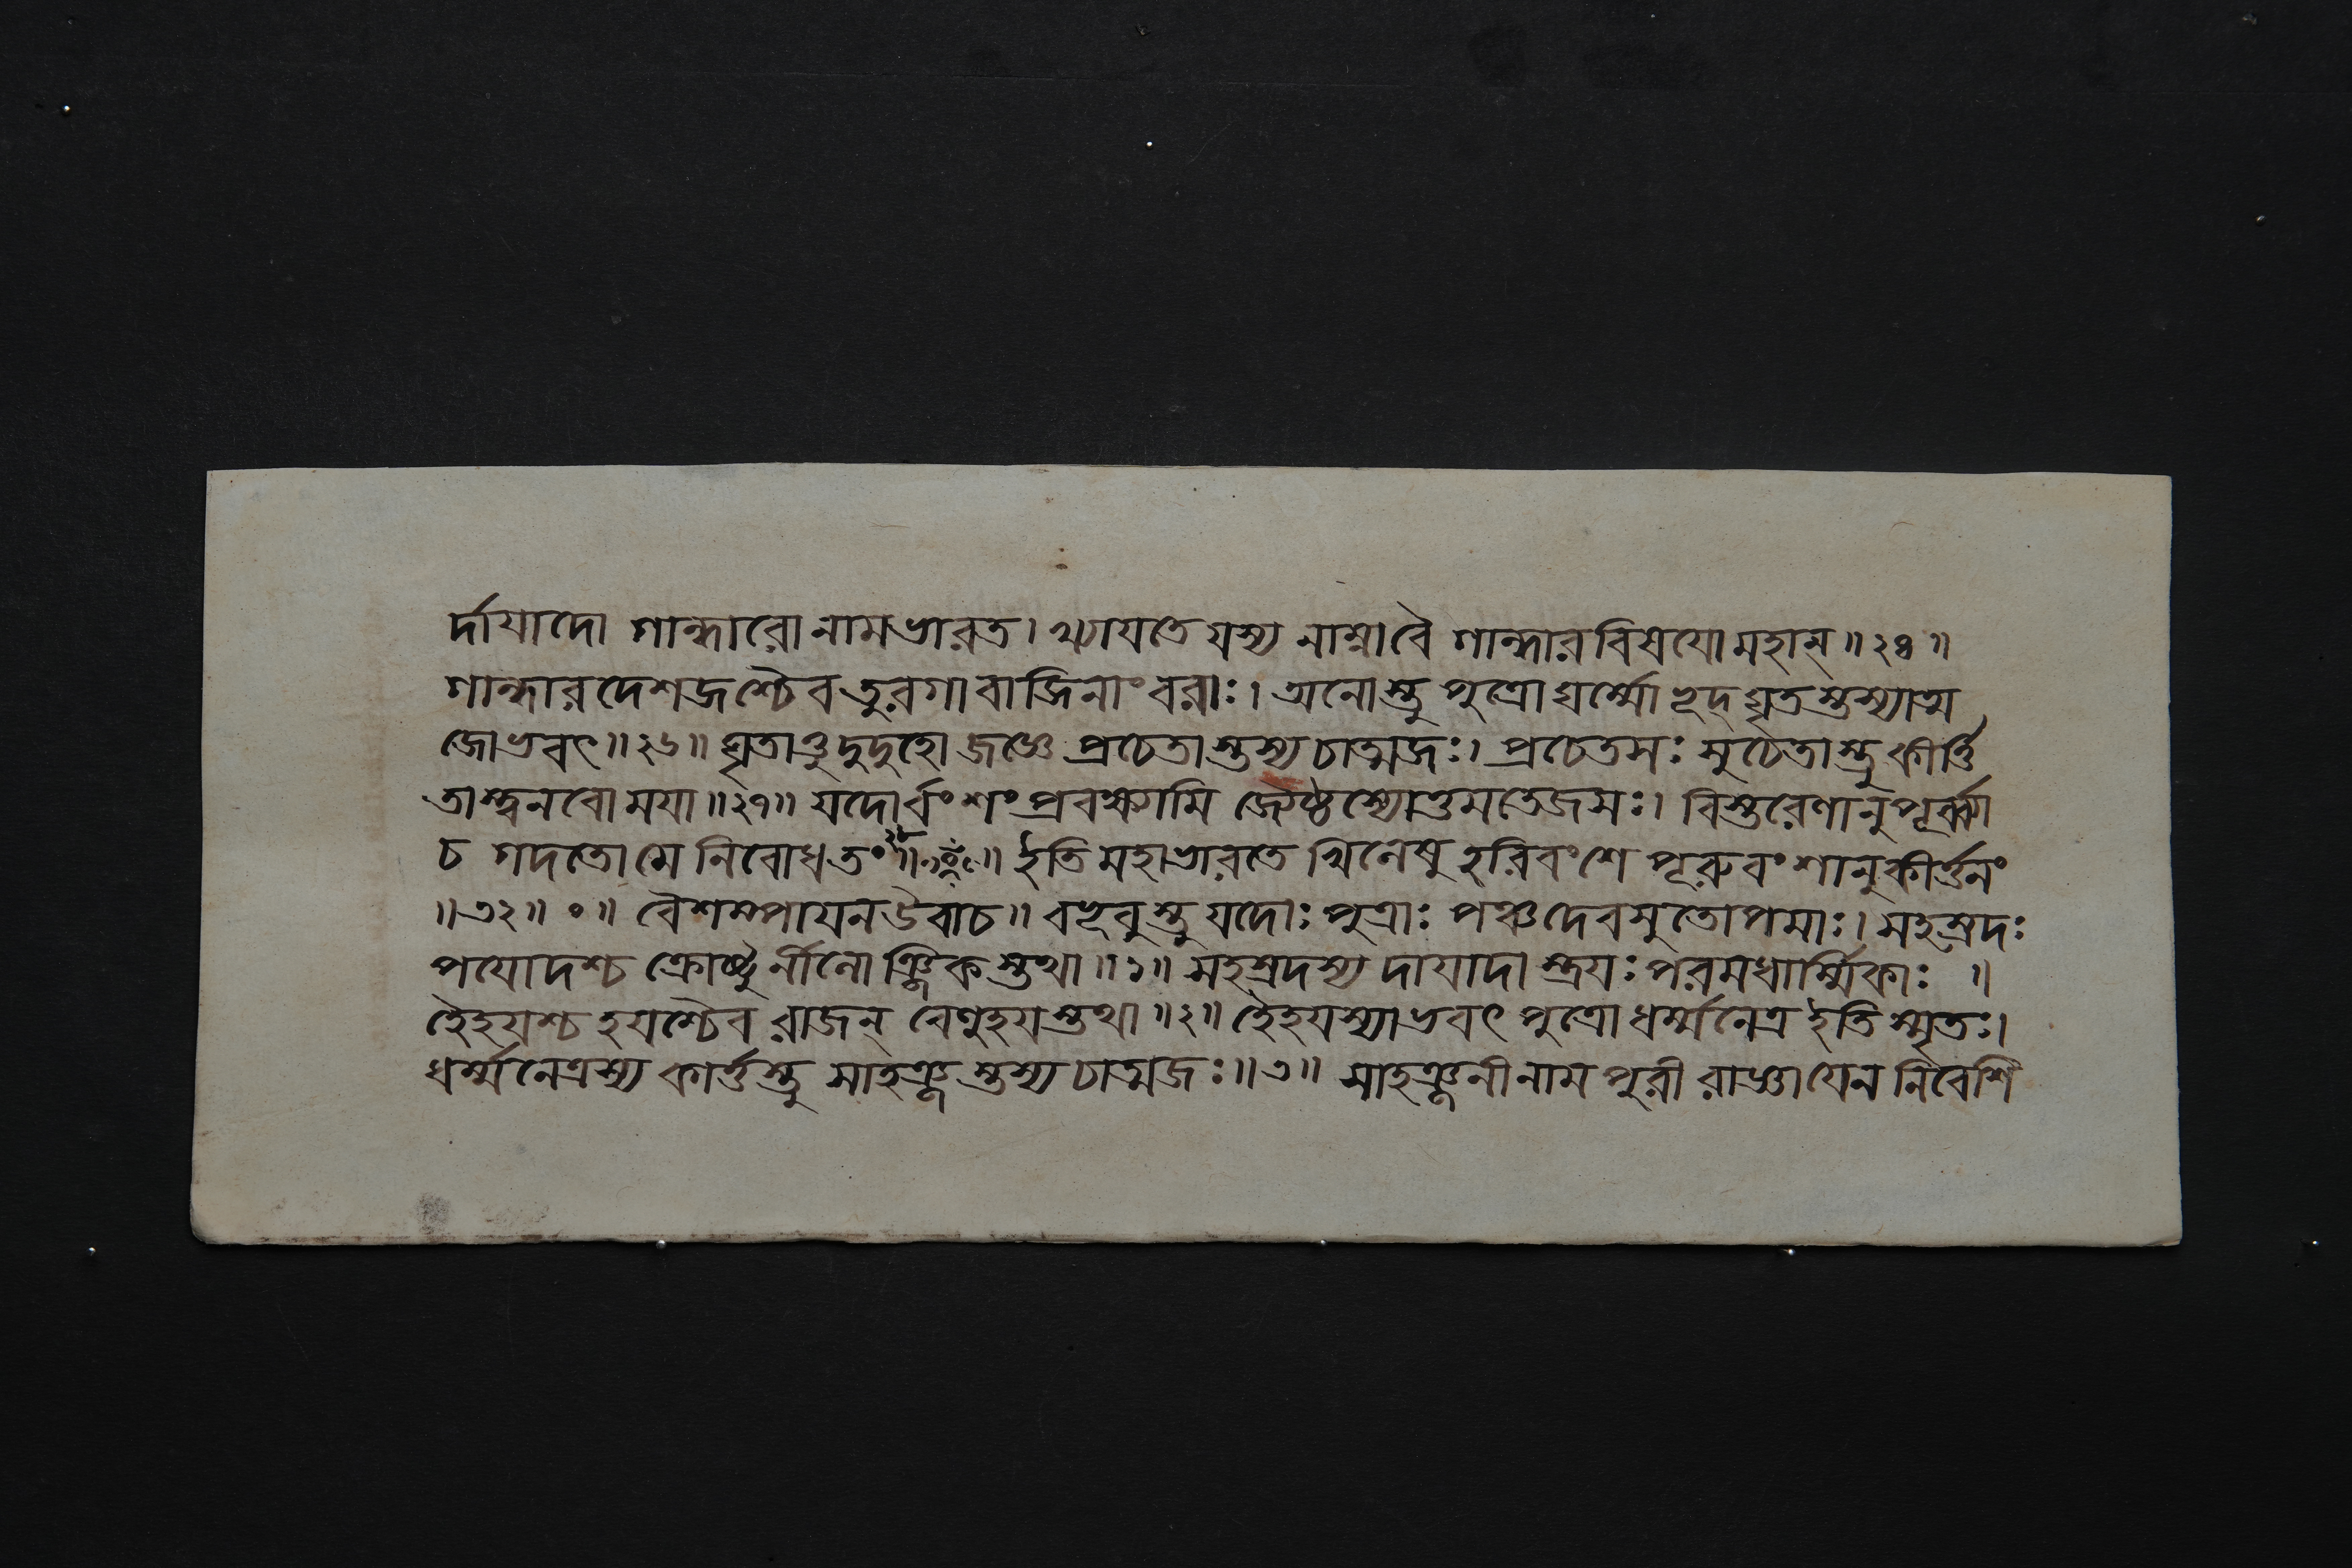 র্দায়াদো গান্ধারো নামভারত। খ্যাযতে যস্য নাম্নাবৈ গান্ধারবিষযোমহান্॥২৫॥
গান্ধারদেশজাশ্চৈব তুরগাবাজিনাং বরাঃ। অনোস্তু পুত্রোঘর্ম্মোভূদ্ ঘৃতস্তস্যাত্ম
জোভবৎ॥২৬॥ ঘৃতাত্তুদুদুহো জজ্ঞে প্রচেতাস্তস্য চাত্মজঃ। প্রচেতসঃ সুচেতাস্তু কীর্ত্তি
তাস্ত্বনবো ময়া॥২৭॥ যদোর্বংশং প্রবক্ষ্যামি জ্যেষ্ঠস্যোত্তমতেজসঃ। বিস্তরেণানুপূর্ব্ব্যা
চ গদতো মে নিবোধত॥২৮॥ ইতি মহাভারতে খিলেষু হরিবংশে পূরুবংশানুকীর্ত্তনং
॥৩২॥ ০॥ বৈশম্পায়ন উবাচ॥ বভূবুস্তু যদোঃ পুত্রাঃ পঞ্চদেবসুতোপমাঃ। সহস্রদঃ
পযোদশ্চ ক্রোষ্টুর্নীলোঞ্জিকস্তথা॥১॥ সহস্রদস্য দায়াদাস্ত্রযঃ পরমধার্ম্মিকাঃ ॥
হৈহযশ্চ হযশ্চৈব রাজন্ বেণুহযস্তথা॥২॥ হৈহযস্যাভবৎ পুত্রো ধর্ম্মনেত্র ইতি স্মৃতঃ।
ধর্ম্মনেত্রস্য কার্ত্তস্তু সাহঞ্জস্তস্য চাত্মজঃ॥৩॥ সাহঞ্জনীনাম পুরী রাজ্ঞাযেন নিবেশি